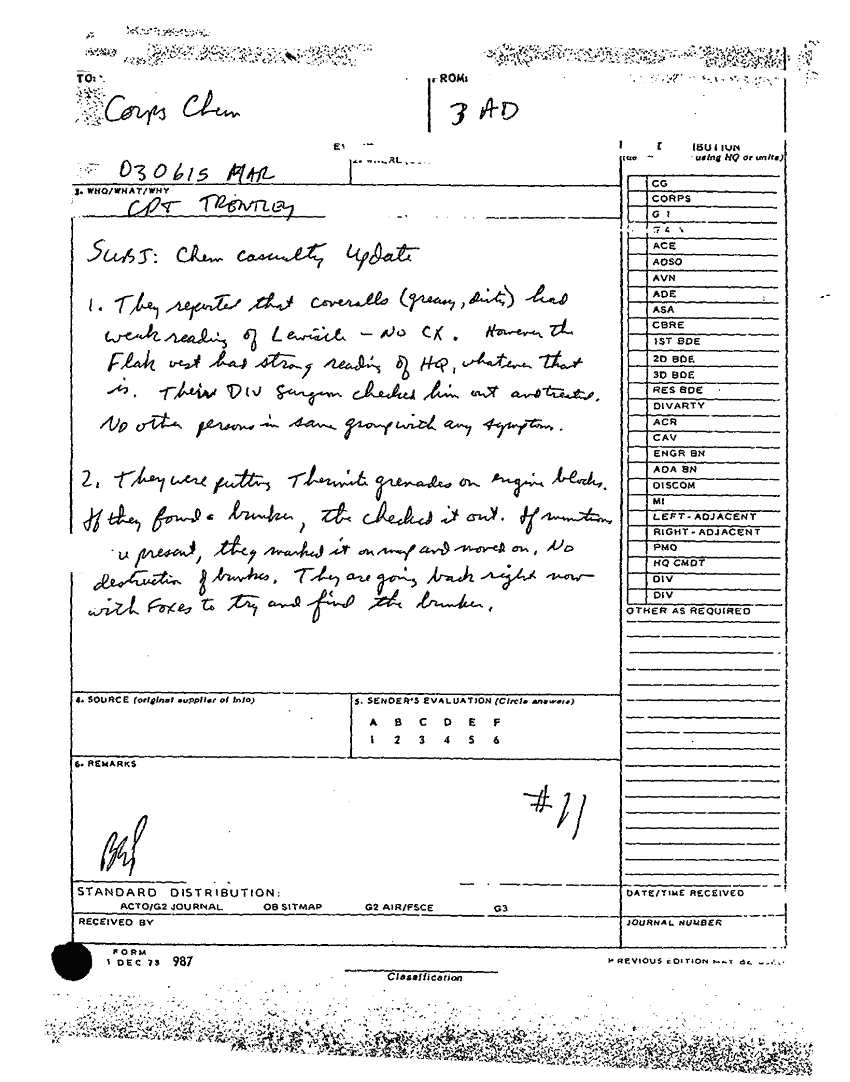 TO:
Corps Chem
FROM:
3 AD
030615 MAR
using HQ or units)
3. WHO/WHAT/WHY
CPT
SUBJ: Chem casualty Update
1. They reported that coveralls (greasy, dirty) had
weak reading of - No CX. However the
Flak vest had strong reading of HQ, whatever that
is. Their DIV Surgeon checked him out and treated.
No other persons in same group with any symptom.
2. They were putting Thermite grenades on engine blocks.
If they found a bunker, the checked it out. If munitions
present, they marked it on map and moved on. No
destruction of bunkers. They are going back right now
with Foxes to try and find the bunker.
4. SOURCE (original supplier of info)
5. SENDER'S EVALUATION (Circle answers)
A B C D E F
1 2 3 4 5 6
6. REMARKS
#11
STANDARD DISTRIBUTION:
ACTO/G2 JOURNAL OB SITMAP G2 AIR/FSCE G3
RECEIVED BY
FORM
1 DEC 73 987
Classification
CG
CORPS
G 1
ACE
ADSO
AVN
ADE
ASA
CBRE
1ST BDE
2D BDE
3D BDE
RES BDE
DIVARTY
ACR
CAV
ENGR BN
ADA BN
DISCOM
MI
LEFT-ADJACENT
RIGHT-ADJACENT
PMO
HQ CMDT
DIV
DIV
OTHER AS REQUIRED
DATE/TIME RECEIVED
JOURNAL NUMBER
PREVIOUS EDITION